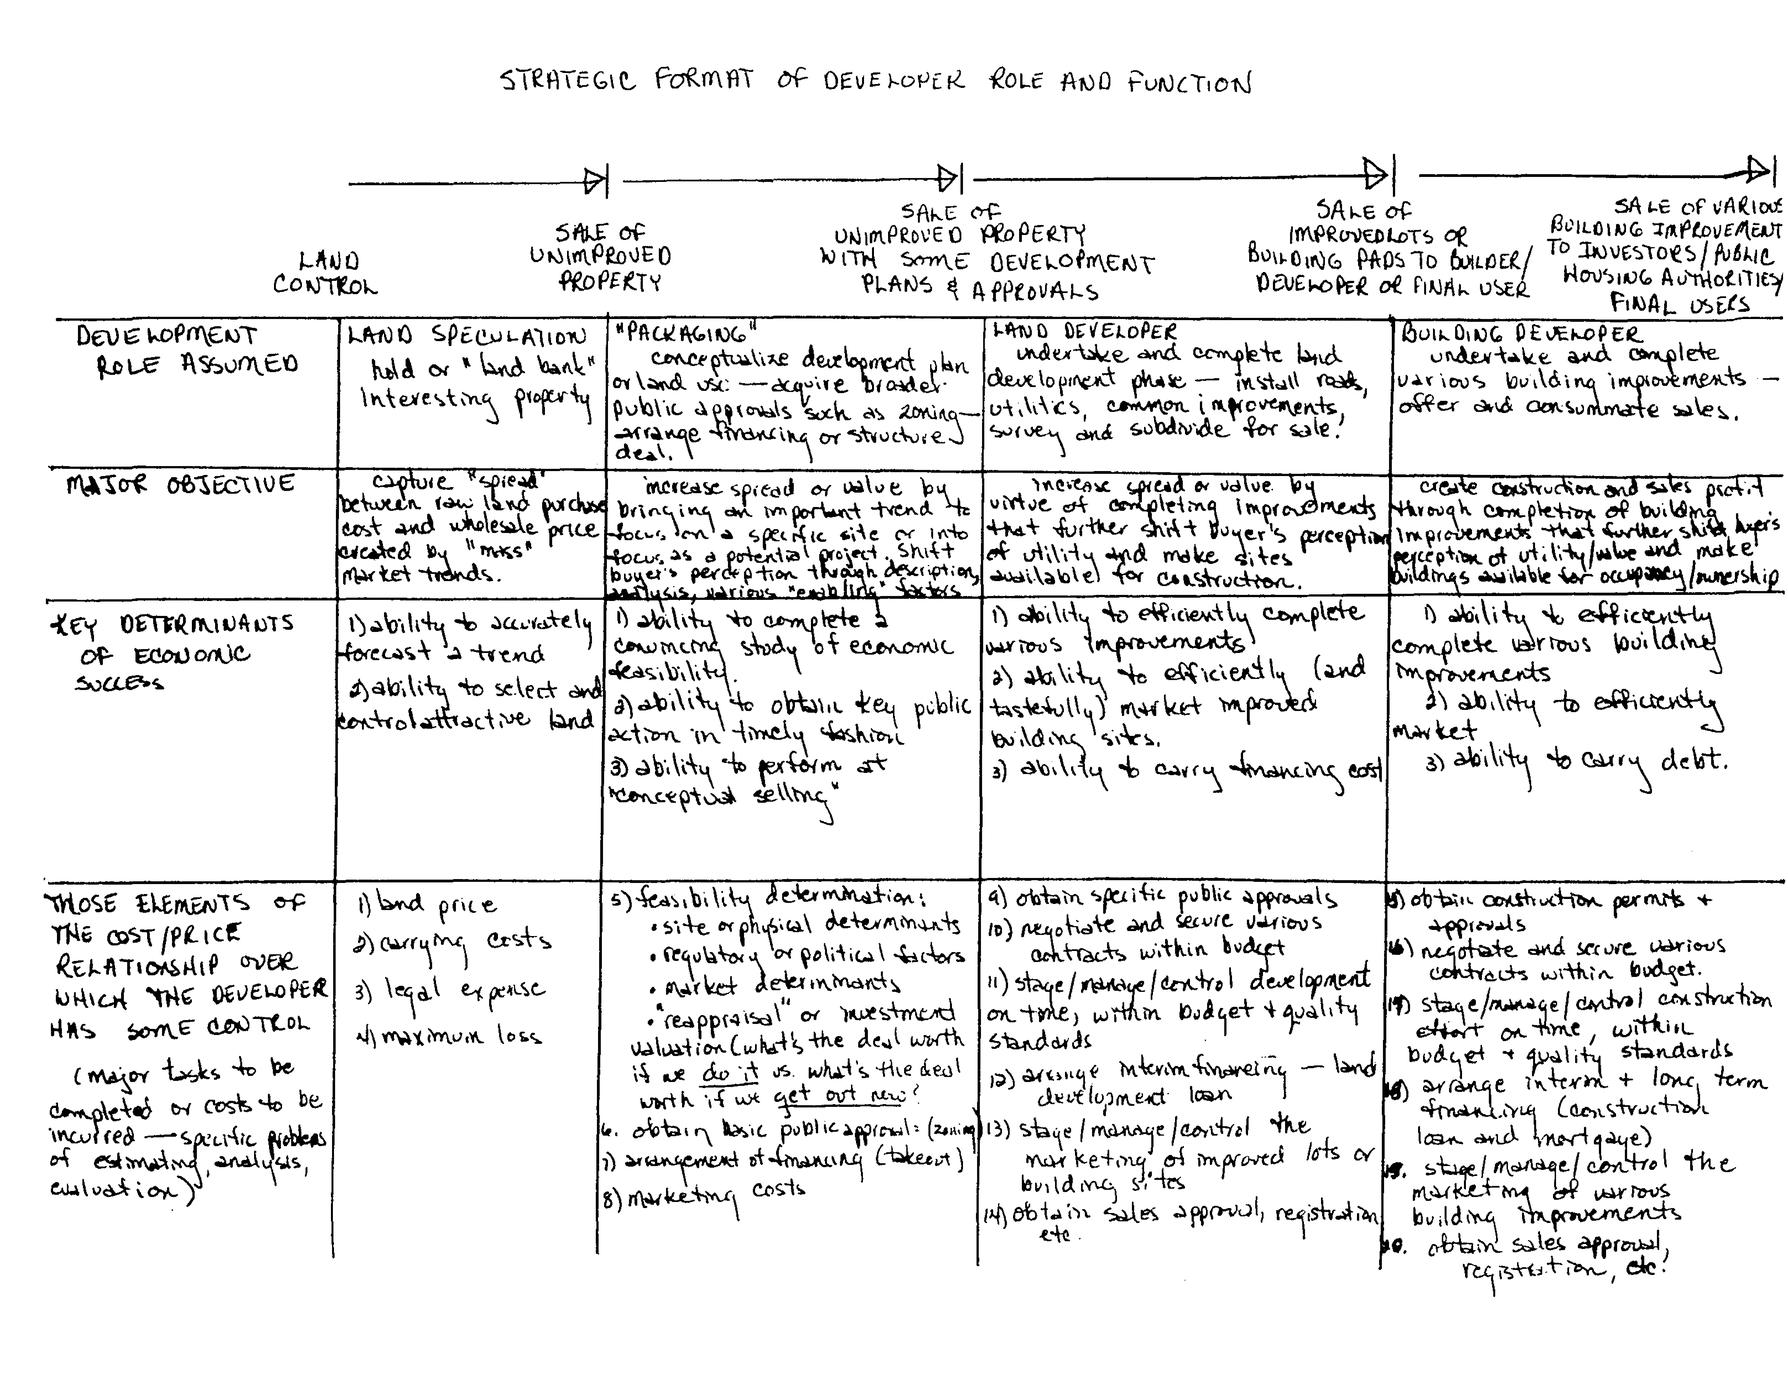 STRATEGIC FORMAT OF DEVELOPER ROLE AND FUNCTION
LAND
CONTROL
SALE OF
UNIMPROVED
PROPERTY
SALE OF
UNIMPROVED PROPERTY
WITH SOME DEVELOPMENT
PLANS & APPROVALS
SALE OF
IMPROVED LOTS OR
BUILDING PADS TO BUILDER/
DEVELOPER OR FINAL USER
SALE OF VARIOUS
BUILDING IMPROVEMENT
TO INVESTORS/PUBLIC
HOUSING AUTHORITIES/
FINAL USERS
DEVELOPMENT
ROLE ASSUMED
LAND SPECULATION
hold or "land bank"
Interesting property
"PACKAGING"
conceptualize development plan
or land use — acquire broader
public approvals such as zoning—
arrange financing or structure
deal.
LAND DEVELOPER
undertake and complete land
development phase — install roads,
utilities, common improvements,
survey and subdivide for sale.
BUILDING DEVELOPER
undertake and complete
various building improvements —
offer and consummate sales.
MAJOR OBJECTIVE
capture "spread"
between raw land purchase
cost and wholesale price
created by "mass"
market trends.
increase spread or value by
bringing an important trend to
focus on a specific site or into
focus as a potential project. Shift
buyer's perception through description,
analysis, various "enabling" factors
increase spread or value by
virtue of completing improvements
that further shift buyer's perception
of utility and make sites
available for construction.
create construction and sales profit
through completion of building
improvements that further shift buyer's
perception of utility/value and make
buildings available for occupancy/ownership
KEY DETERMINANTS
OF ECONOMIC
SUCCESS
1) ability to accurately
forecast a trend
2) ability to select and
control attractive land
1) ability to complete a
convincing study of economic
feasibility.
2) ability to obtain key public
action in timely fashion
3) ability to perform at
"conceptual selling"
1) ability to efficiently complete
various improvements
2) ability to efficiently (and
tastefully) market improved
building sites.
3) ability to carry financing cost
1) ability to efficiently
complete various building
improvements
2) ability to efficiently
market
3) ability to carry debt.
THOSE ELEMENTS OF
THE COST/PRICE
RELATIONSHIP OVER
WHICH THE DEVELOPER
HAS SOME CONTROL
(major tasks to be
completed or costs to be
incurred — specific problems
of estimating, analysis,
evaluation)
1) land price
2) carrying costs
3) legal expense
4) maximum loss
5) feasibility determination:
• site or physical determinants
• regulatory or political factors
• market determinants
• "reappraisal" or investment
valuation (what's the deal worth
if we do it vs. what's the deal
worth if we get out now?
6. obtain basic public approval: (zoning)
7) arrangement of financing (takeout)
8) marketing costs
9) obtain specific public approvals
10) negotiate and secure various
contracts within budget
11) stage/manage/control development
on time, within budget + quality
standards
12) arrange interim financing — land
development loan
13) stage/manage/control the
marketing of improved lots or
building sites
14) obtain sales approval, registration
etc.
15) obtain construction permits +
approvals
16) negotiate and secure various
contracts within budget.
17) stage/manage/control construction
effort on time, within
budget + quality standards
18) arrange interim + long term
financing (construction
loan and mortgage)
19. stage/manage/control the
marketing of various
building improvements
20. obtain sales approval,
registration, etc.